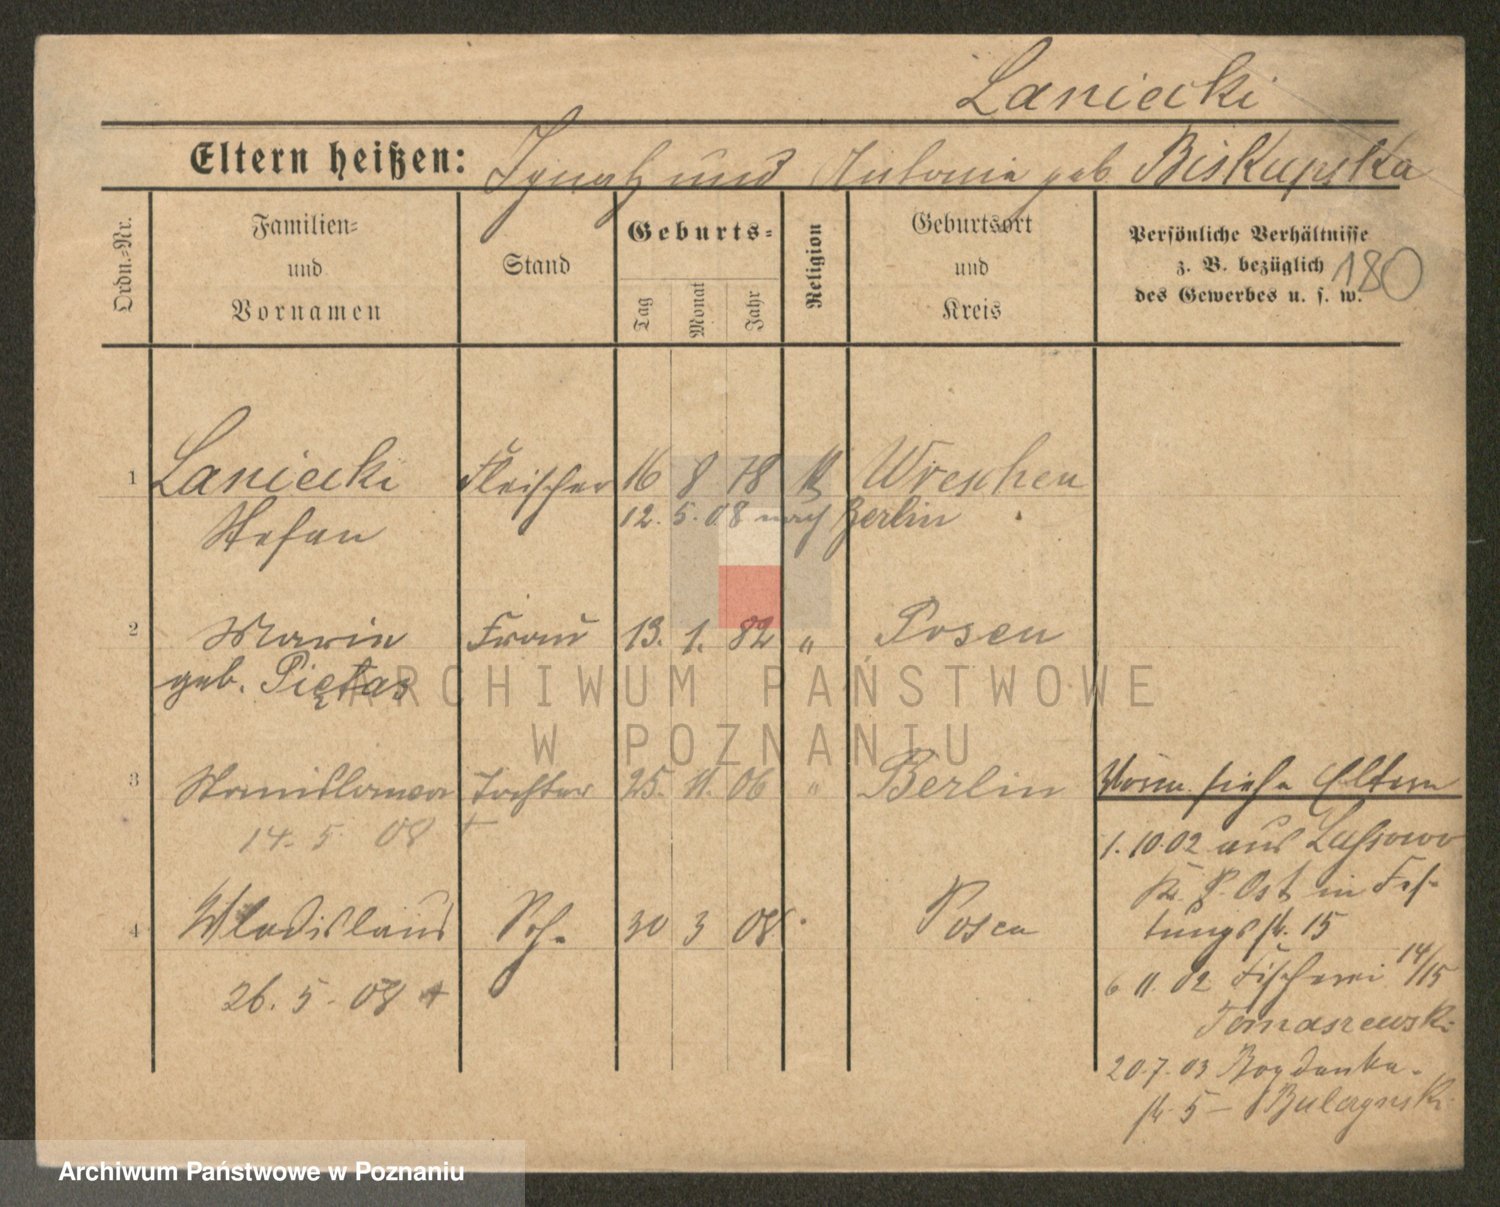 Laniecki
Eltern heißen: Ignatz und Antonie geb. Biskupska
Ordn.-Nr.
Familien- und Vornamen
Stand
Geburts-
Tag
Monat
Jahr
Religion
Geburtsort und Kreis
Persönliche Verhältnisse
z. B. bezüglich
des Gewerbes u. s. w.
180
1 Laniecki Fleischer 16 8 78 k Wreschen
12. 5. 08 nach Berlin
Stefan
2 Marie Frau 13. 1. 82 " Posen
geb. Piętas
ARCHIWUM PAŃSTWOWE
W POZNANIU
3 Stanislawa Tochter 25. 11. 06 " Berlin
14. 5. 08 +
4 Wladislaus Soh. 30 3 08 Posen
26. 5. 08 +
Vorm. siehe Eltern
1. 10 02 aus Lassowo
Kr. P. Ost in Fes-
tungsstr. 15
6 11. 02 Fischerei 14/15
Tomaszewski
20. 7. 03 Bogdanka-
str. 5 –
Archiwum Państwowe w Poznaniu